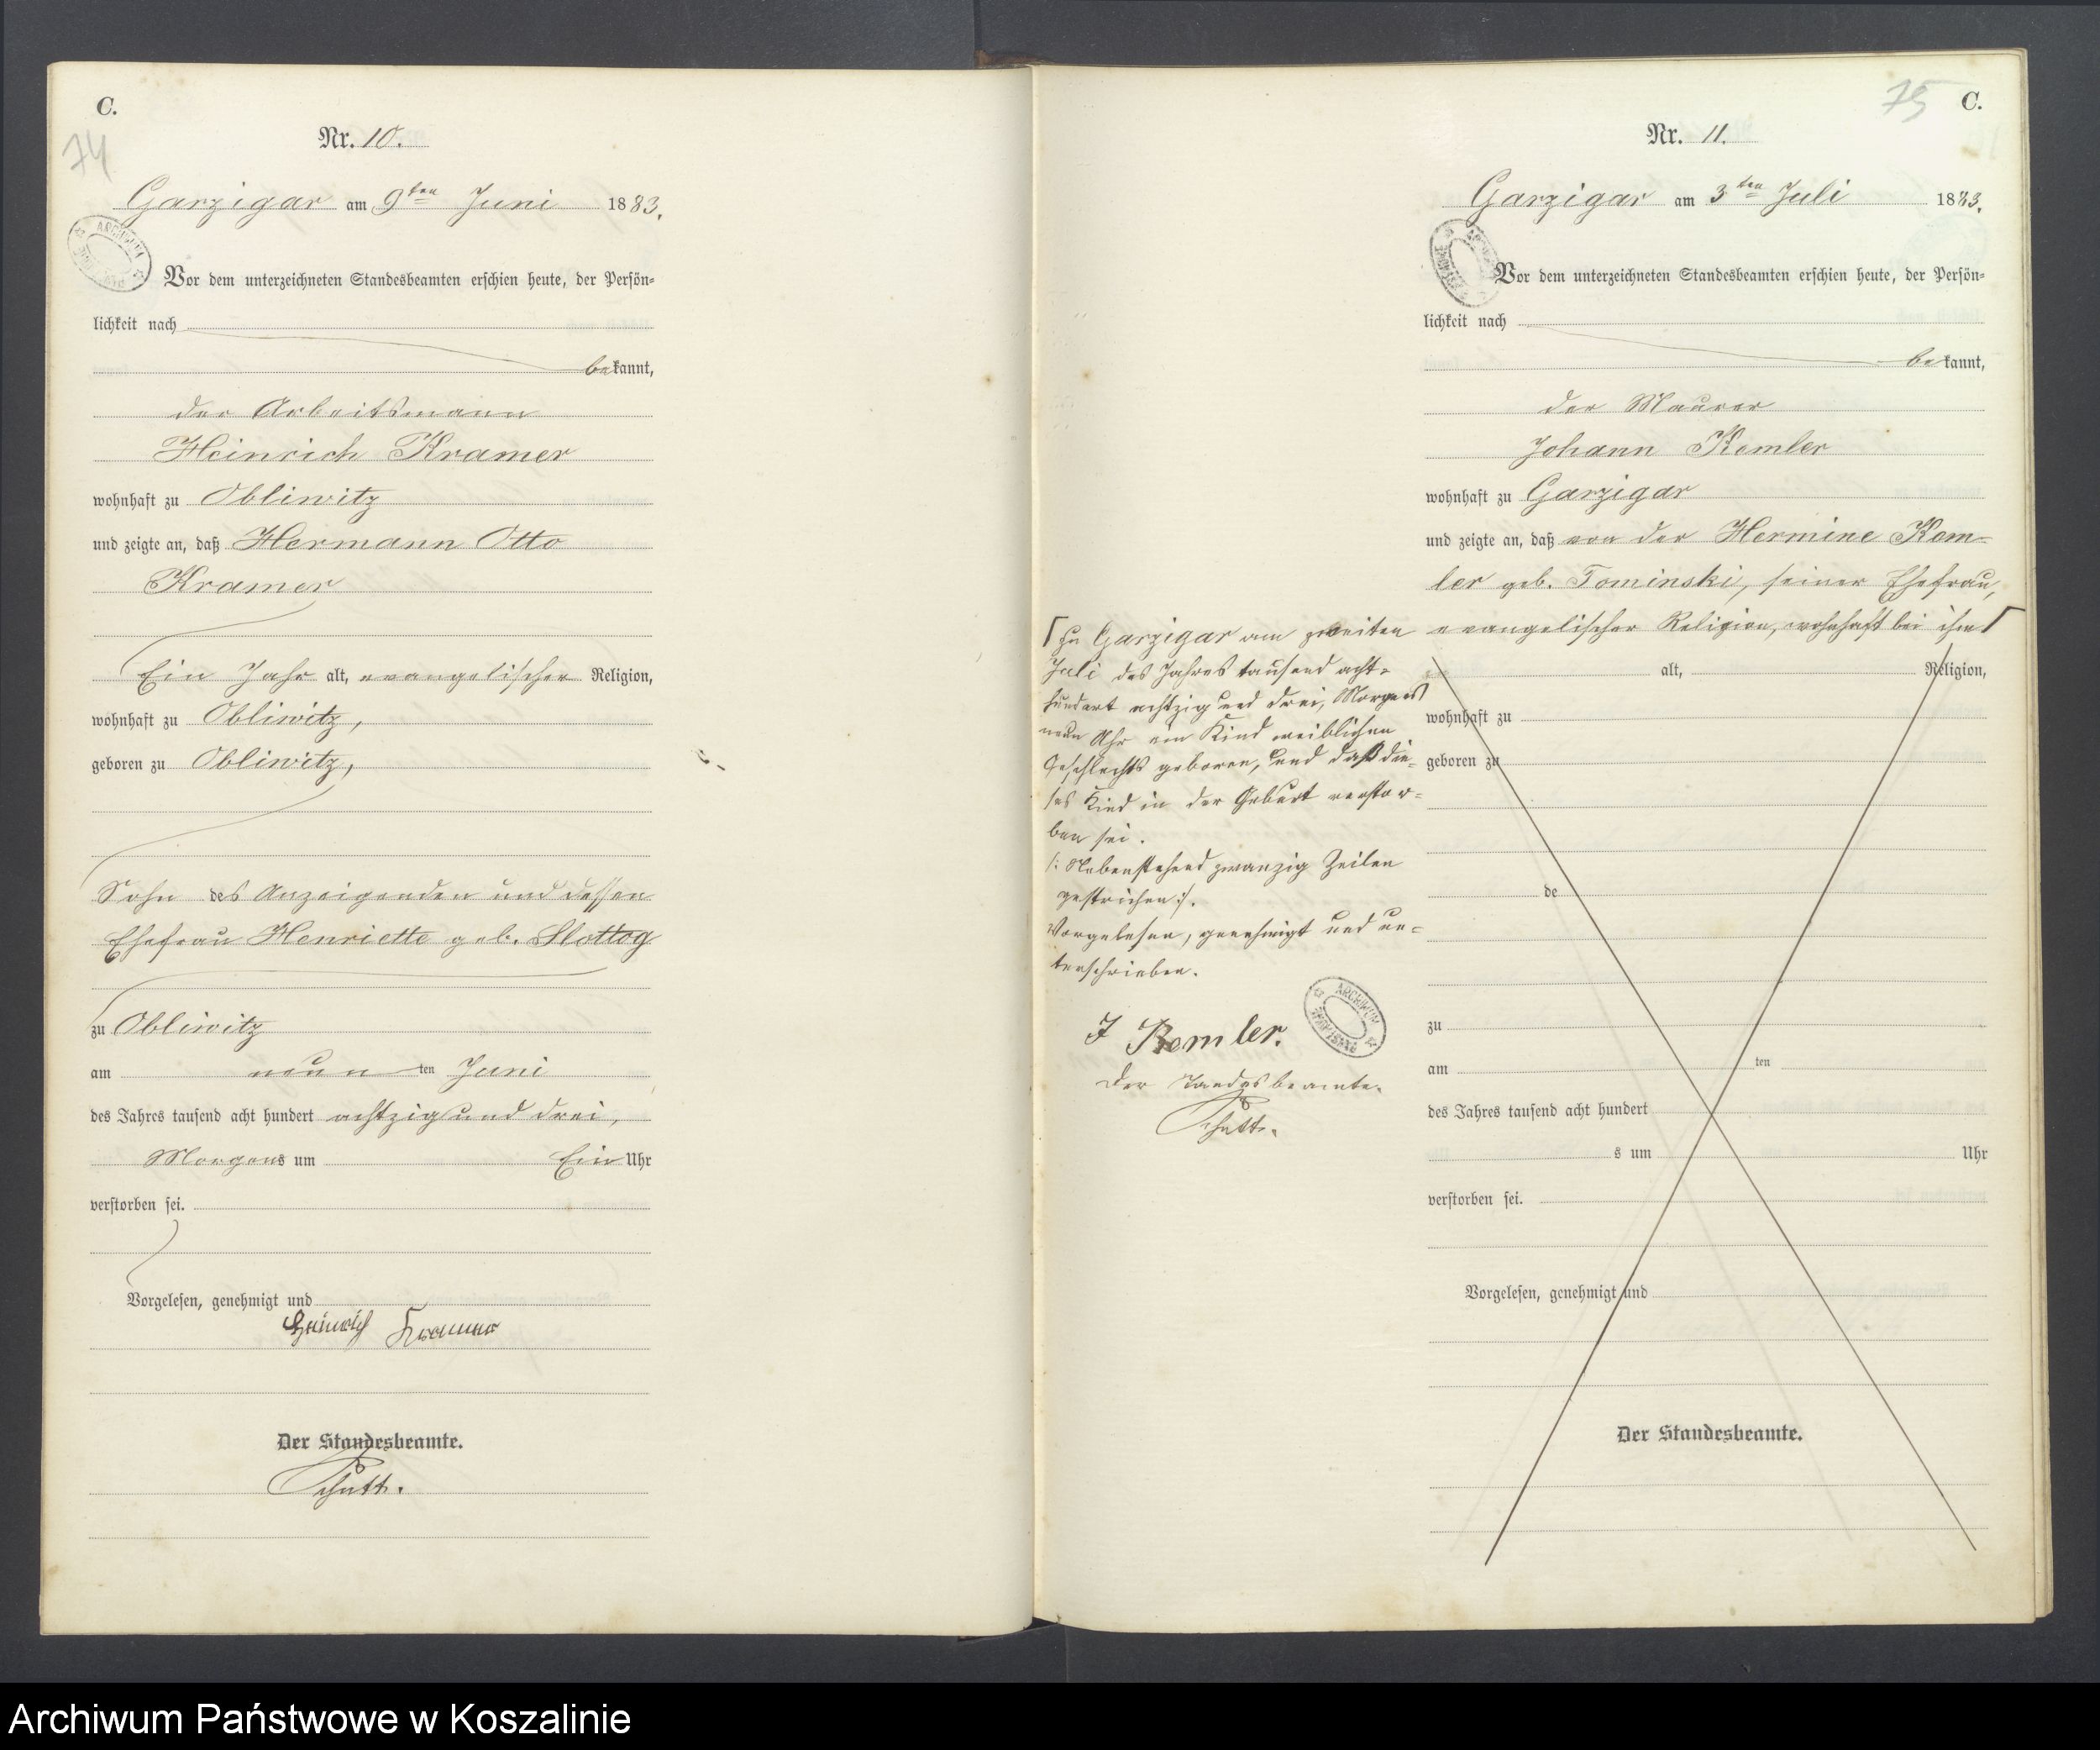 C.
74
Nr. 10.
Garzigar am 9ten Juni 1883.
Vor dem unterzeichneten Standesbeamten erschien heute, der Persön-
lichkeit nach
bekannt,
der Arbeitsmann
Heinrich Kramer
wohnhaft zu Obliwitz
und zeigte an, daß Hermann Otto
Kramer
Ein Jahr alt, evangelischer Religion,
wohnhaft zu Obliwitz,
geboren zu Obliwitz,
Sohn des Anzeigenden und dessen
Ehefrau Henriette geb.
zu Obliwitz
am neunten Juni
des Jahres tausend acht hundert achtzig und drei,
Morgens um Ein Uhr
verstorben sei.
Vorgelesen, genehmigt und
Heinrich Kramer
Der Standesbeamte.
75
C.
Nr. 11.
Garzigar am 3ten Juli 1883.
Vor dem unterzeichneten Standesbeamten erschien heute, der Persön-
lichkeit nach
bekannt,
der Maurer
Johann Kemler
wohnhaft zu Garzigar
und zeigte an, daß von der Hermine Kem-
ler geb. Tominski, seiner Ehefrau,
evangelischer Religion, wohnhaft bei ihm
zu Garzigar am zweiten
Juli des Jahres tausend acht-
hundert achtzig und drei, Morgens
neun Uhr ein Kind weiblichen
Geschlechts geboren, und daß die-
ses Kind in der Geburt verstor-
ben sei.
/: Nebenstehend zwanzig Zeilen
gestrichen :/.
Vorgelesen, genehmigt und un-
terschrieben.
J Kemler.
Der Standesbeamte.
alt, Religion,
wohnhaft zu
geboren zu
de
zu
am ten
des Jahres tausend acht hundert
s um Uhr
verstorben sei.
Vorgelesen, genehmigt und
Der Standesbeamte.
Archiwum Państwowe w Koszalinie